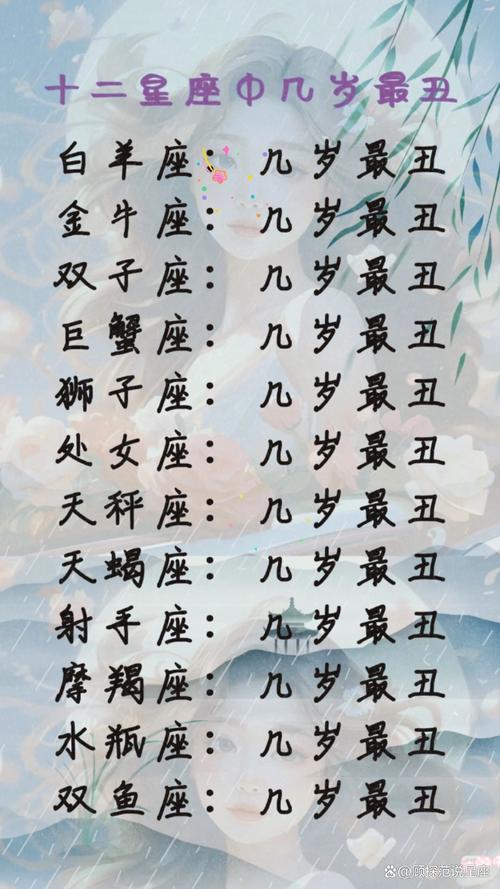 十二星座中几岁最丑
白羊座: 几岁最丑
金牛座: 几岁最丑
双子座: 几岁最丑
巨蟹座: 几岁最丑
狮子座: 几岁最丑
处女座: 几岁最丑
天秤座: 几岁最丑
天蝎座: 几岁最丑
射手座: 几岁最丑
摩羯座: 几岁最丑
水瓶座: 几岁最丑
双鱼座: 几岁最丑
@顾探范说星座